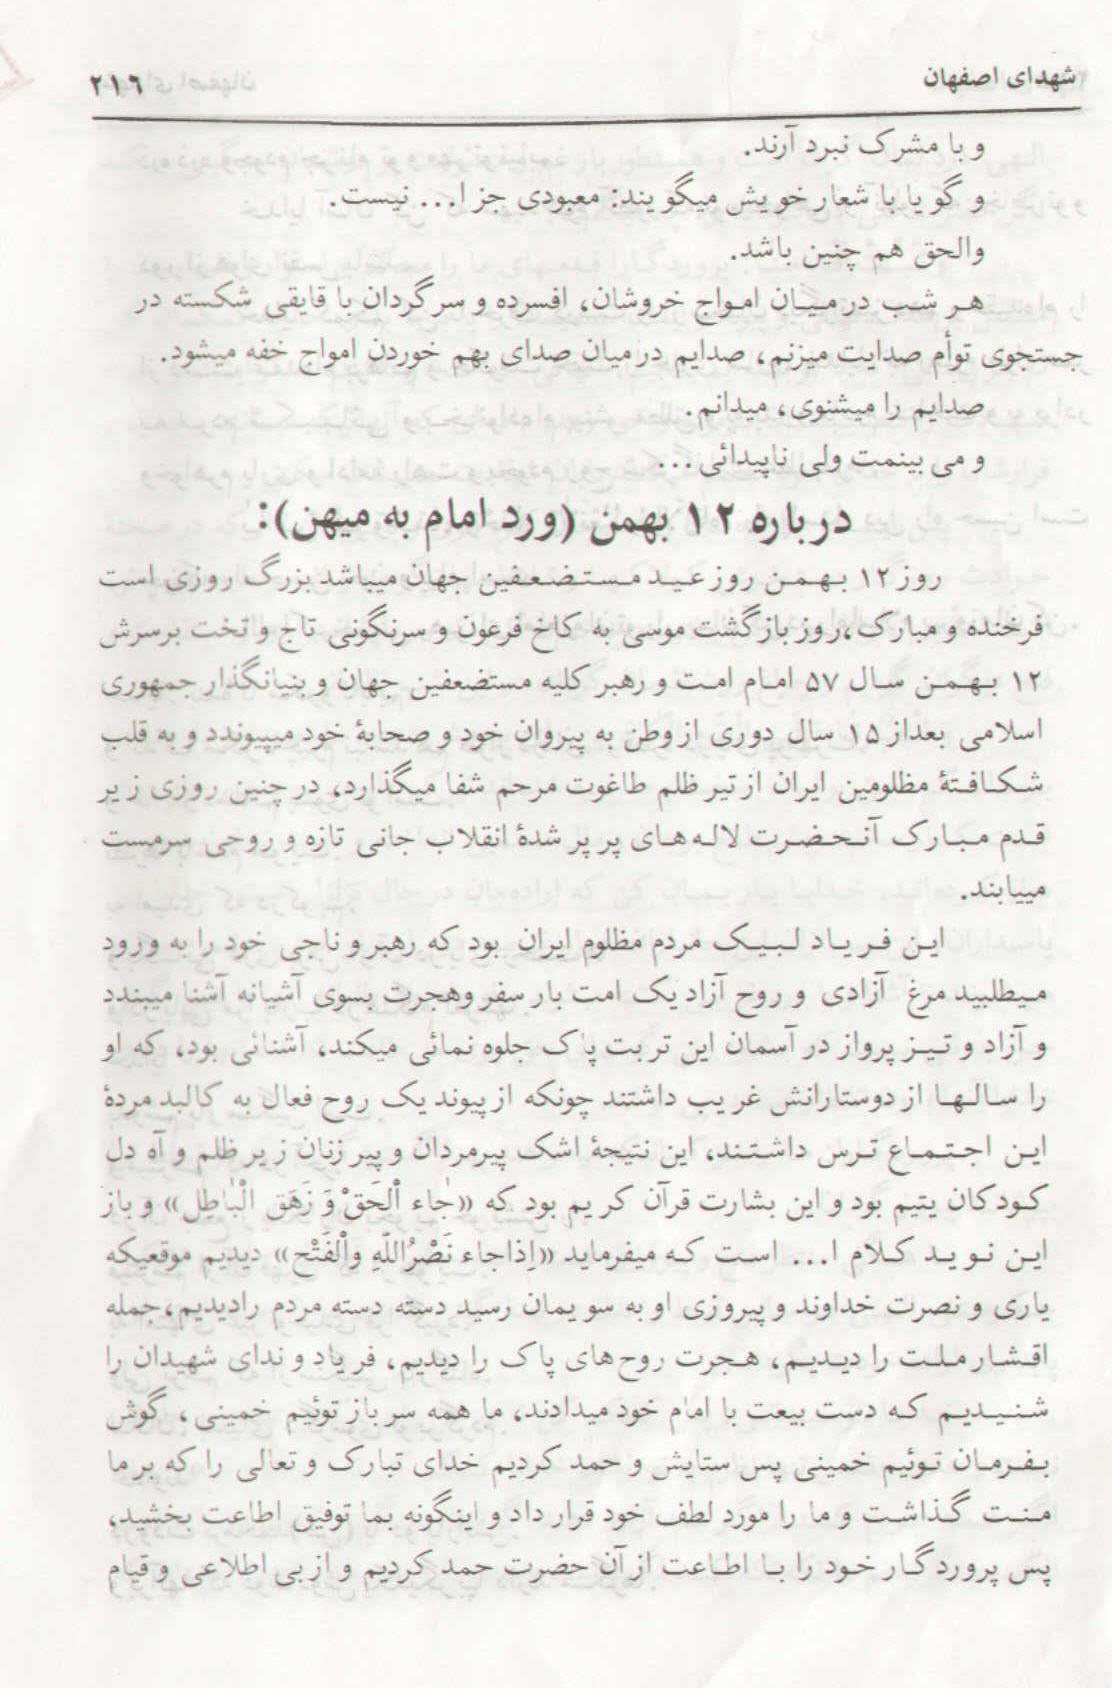 شهدای اصفهان ۲۱۶
و با مشرک نبرد آرند.
و گویا با شعار خویش میگویند: معبودی جز ا... نیست.
والحق هم چنین باشد.
هر شب در میان امواج خروشان، افسرده و سرگردان با قایقی شکسته در
جستجوی توأم صدایت میزنم، صدایم در میان صدای بهم خوردن امواج خفه میشود.
صدایم را میشنوی، میدانم.
و می بینمت ولی ناپیدائی...
درباره ۱۲ بهمن (ورد امام به میهن):
روز ۱۲ بهمن روز عید مستضعفین جهان میباشد بزرگ روزی است
فرخنده و مبارک، روز بازگشت موسی به کاخ فرعون و سرنگونی تاج و تخت برسرش
۱۲ بهمن سال ۵۷ امام امت و رهبر کلیه مستضعفین جهان و بنیانگذار جمهوری
اسلامی بعداز ۱۵ سال دوری از وطن به پیروان خود و صحابهٔ خود میپیوندد و به قلب
شکافتهٔ مظلومین ایران از تیر ظلم طاغوت مرحم شفا میگذارد، در چنین روزی زیر
قدم مبارک آنحضرت لاله های پر پر شدهٔ انقلاب جانی تازه و روحی سرمست
مییابند.
این فریاد لبیک مردم مظلوم ایران بود که رهبر و ناجی خود را به ورود
میطلبید مرغ آزادی و روح آزاد یک امت بار سفر وهجرت بسوی آشیانه آشنا میبندد
و آزاد و تیز پرواز در آسمان این تربت پاک جلوه نمائی میکند، آشنائی بود، که او
را سالها از دوستارانش غریب داشتند چونکه از پیوند یک روح فعال به کالبد مردهٔ
این اجتماع ترس داشتند، این نتیجهٔ اشک پیرمردان و پیر زنان زیر ظلم و آه دل
کودکان یتیم بود و این بشارت قرآن کریم بود که «جٰاء اْلحَقْ وَ زَهَق الْبٰاطِل» و باز
این نوید کلام ا... است که میفرماید «اِذاجاء نَصْرُاللّهِ واْلفَتْح» دیدیم موقعیکه
یاری و نصرت خداوند و پیروزی او به سویمان رسید دسته دسته مردم رادیدیم، جمله
اقشار ملت را دیدیم، هجرت روح های پاک را دیدیم، فریاد و ندای شهیدان را
شنیدیم که دست بیعت با امام خود میدادند، ما همه سرباز توئیم خمینی، گوش
بفرمان توئیم خمینی پس ستایش و حمد کردیم خدای تبارک و تعالی را که بر ما
منت گذاشت و ما را مورد لطف خود قرار داد و اینگونه بما توفیق اطاعت بخشید،
پس پروردگار خود را با اطاعت از آن حضرت حمد کردیم و از بی اطلاعی و قیام